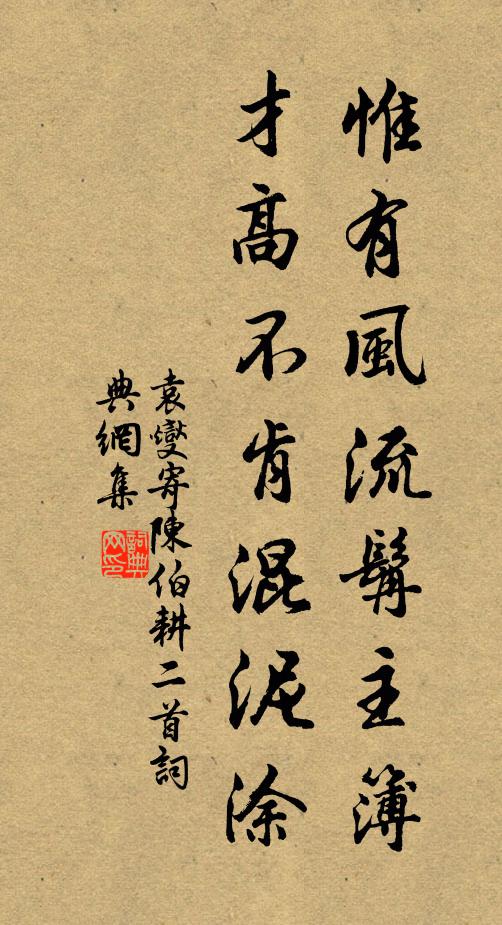 惟有風流髯主簿
才高不肯混泥涂
袁燮寄陳伯耕二首詞
典網集
詞典
网印